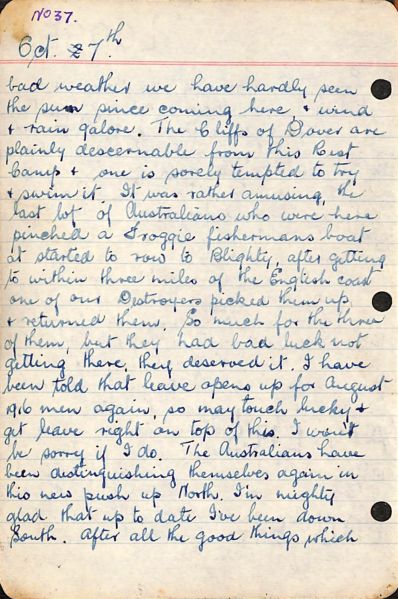 No 37.
Oct. 27th
bad weather we have hardly seen
the sun since coming here, & wind
& rain galore. The Cliffs of Dover are
plainly descernable from this Rest
Camp & one is sorely tempted to try
& swim it. It was rather amusing, the
last lot of Australians who were here
pinched a Froggie fishermans boat
at started to row to Blighty, after getting
to within three miles of the English coast
one of our Destroyers picked them up,
& returned them. So much for the three
of them, but they had bad luck not
getting there, they deserved it. I have
been told that leave opens up for August
1916 men again, so may touch lucky &
get leave right on top of this. I won't
be sorry if I do. The Australians have
been distinguishing themselves again in
this new push up North. I'm mighty
glad that up to date I've been down
South. After all the good things which